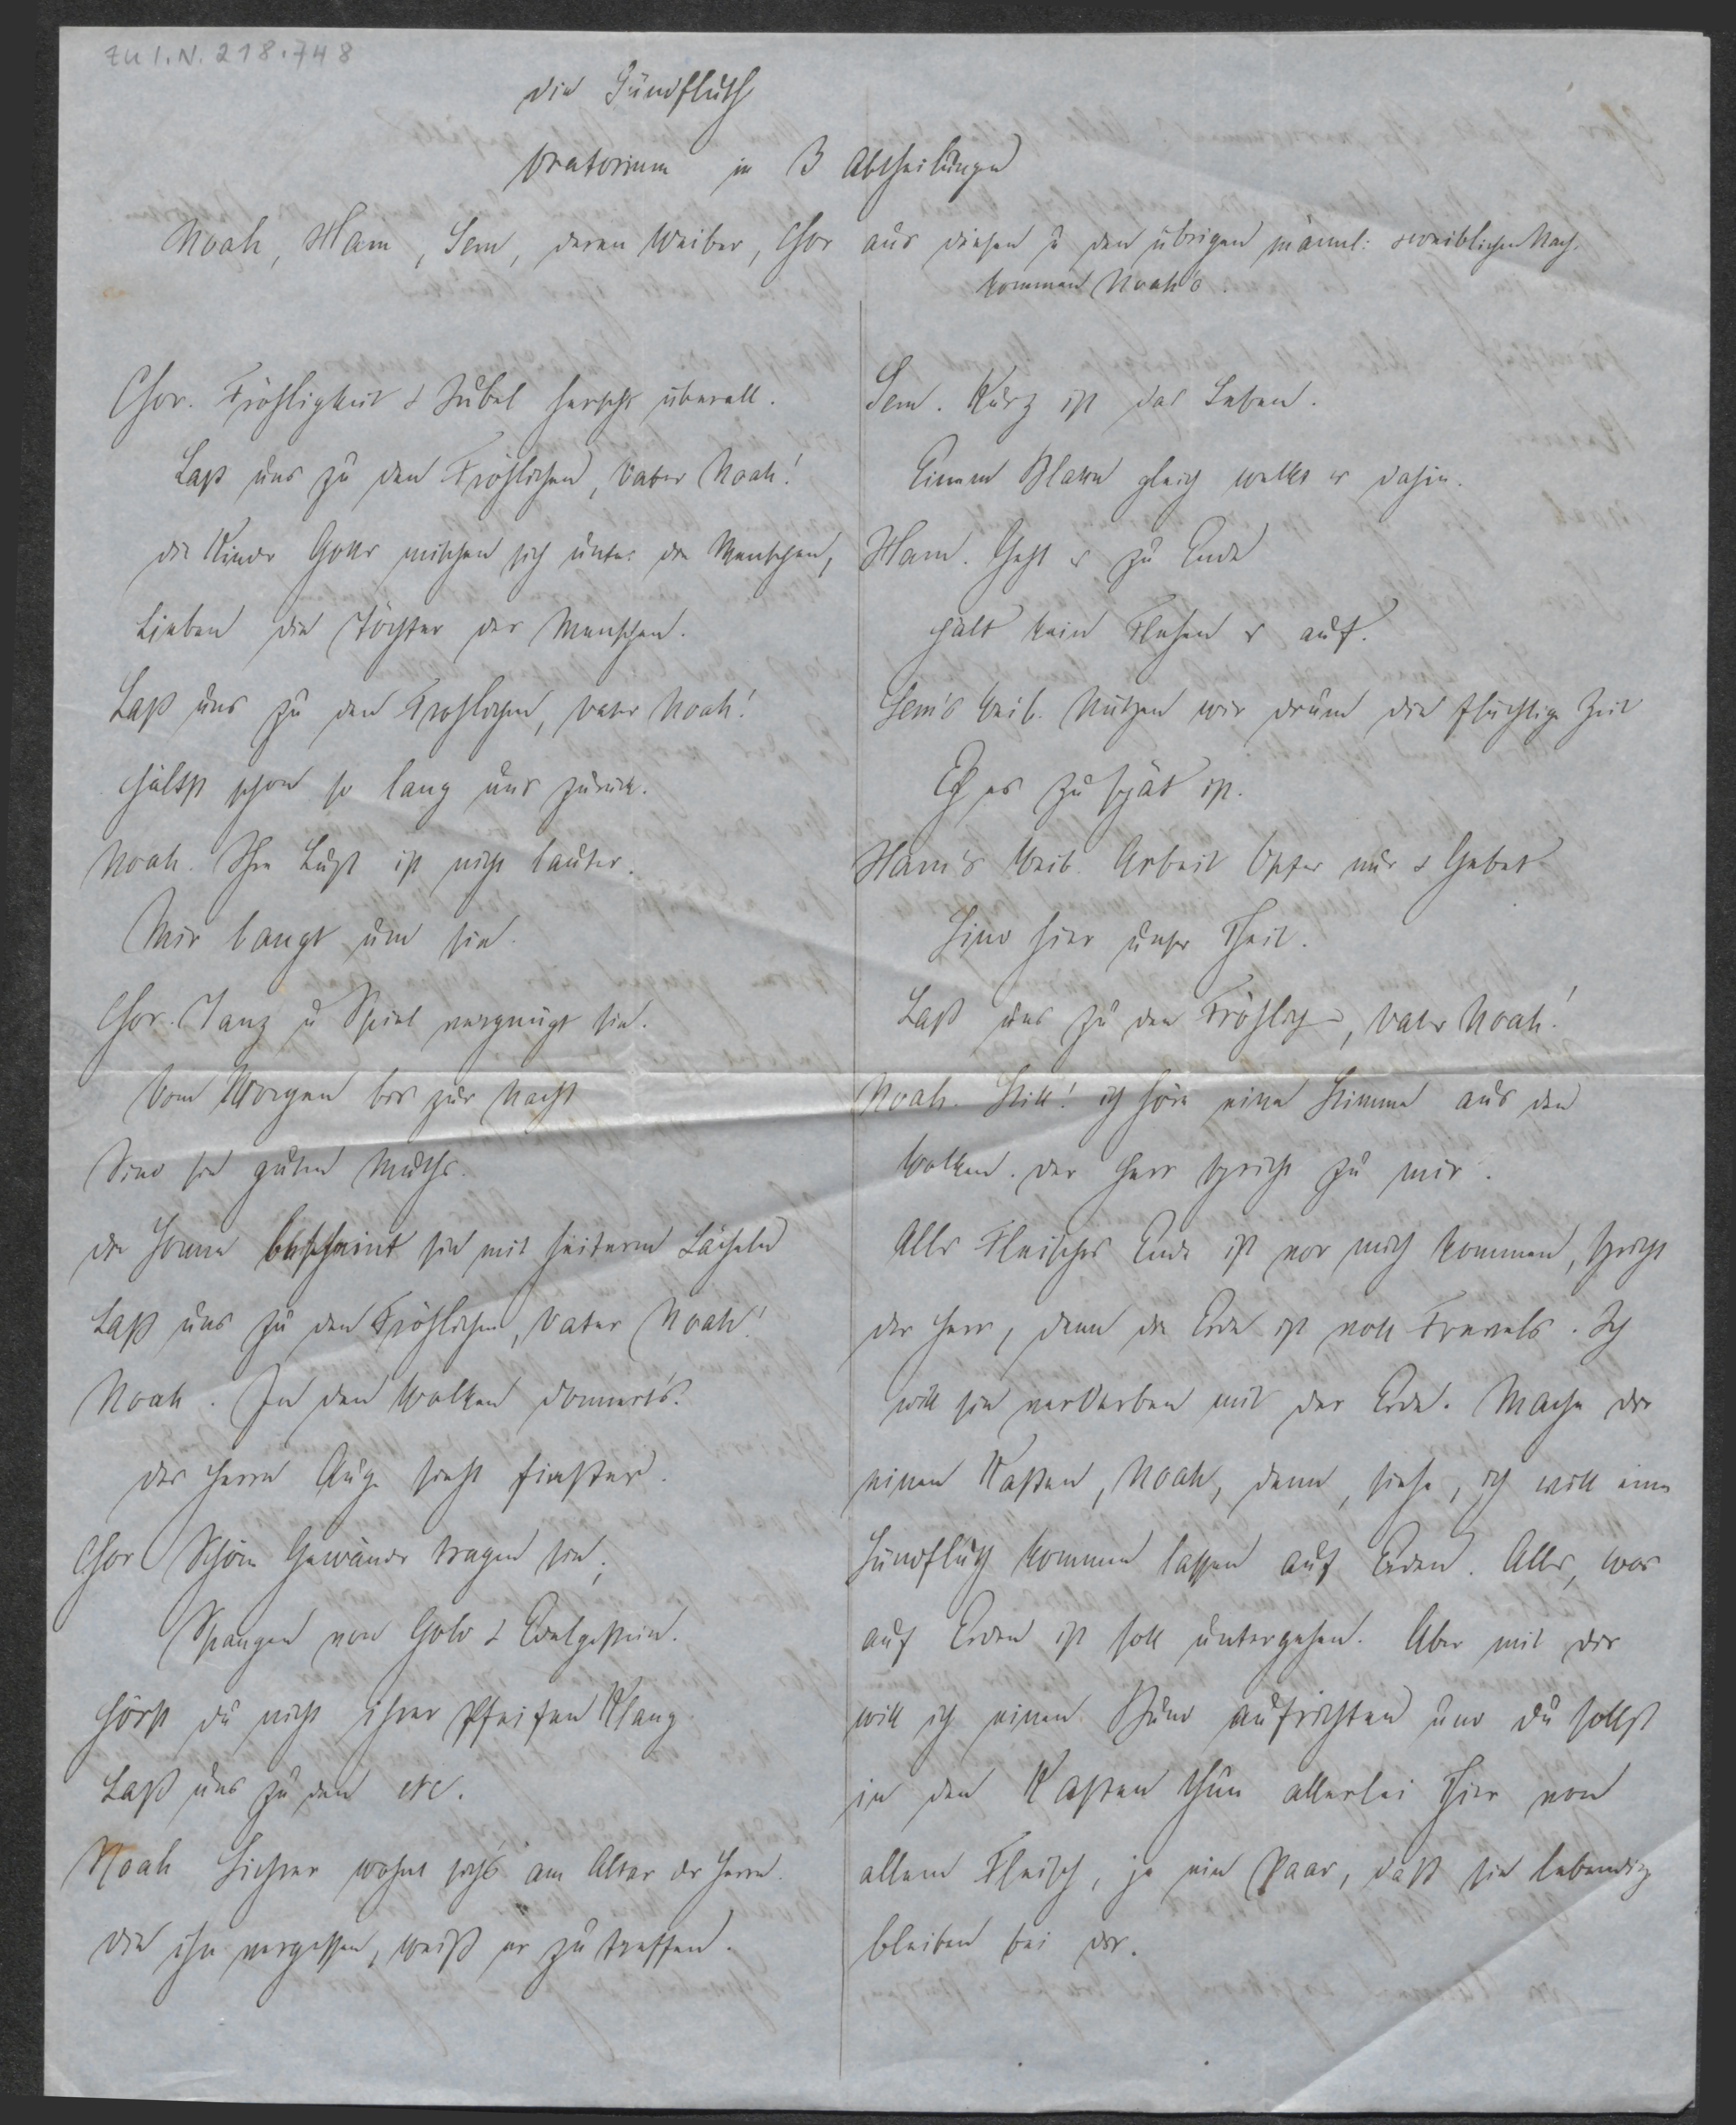 ZU I.N. 218.748
die Sündfluth
Oratorium in 3 Abtheilungen
Noah, Ham, Sem, deren Weiber, Chor aus diesen u den übrigen männl: & weiblichen Nach-
kommen Noah's.
Chor. Fröhligkeit & Jubel herscht überall.
Laß uns zu den Fröhlichen, Vater Noah!
die Kinder Gottes mischen sich unter die Menschen,
Lieben die Töchter der Menschen.
Laß uns zu den Frohlichen, Vater Noah!
Hältst schon so lang uns zurück.
Noah. Ihre Lust ist nicht lauter.
Mir bangt um sie.
Chor. Tanz u Spiel vergnügt sie.
Vom Morgen bis zur Nacht
Sind sie guten Muths.
die Sonne bescheint sie mit heiterm Lächeln
Laß uns zu den Fröhlichen, Vater Noah!
Noah. In den Wolken donnert's.
des Herrn Auge sieht finster.
Chor Schöne Gewänder tragen sie;
Spangen von Gold & Edelgestein.
Hörst du nicht ihrer Pfeifen Klang
Laß uns zu den etc.
Noah Sichrer wohnt sich's am Altar des Herrn.
Die ihn vergessen, weiß er zu treffen.
Sem. Kurz ist das Leben.
Einem Blatte gleich welkt es dahin.
Ham. Geht es zu Ende
hält kein Flehen es auf.
Sem's Weib. Nutzen wir drum die flüchtige Zeit
Eh es zu spät ist.
Ham's Weib. Arbeit Opfer nur & Gebet
Sind hier unser Theil.
Laß uns zu den Fröhlichen, Vater Noah!
Noah. Still! ich höre eine Stimme aus den
Wolken. der Herr spricht zu mir.
Alles Fleisches Ende ist vor mich kommen, spricht
der Herr, denn die Erde ist voll Frevels. Ich
will sie verderben mit der Erde. Mache dir
einen Kasten, Noah, denn, siehe, ich will eine
Sündfluth kommen lassen auf Erden. Alles, was
auf Erden ist soll untergehen. Aber mit dir
will ich einen Bund aufrichten und du sollst
in den Kasten thun allerlei Thier von
allem Fleisch, je ein Paar, daß sie lebendig
bleiben bei dir.